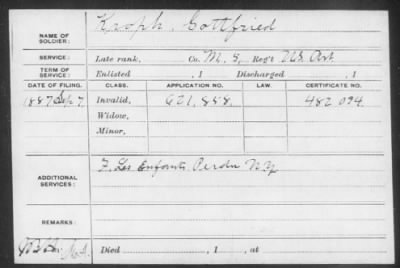 NAME OF SOLDIER: Kroph, Gottfried
SERVICE: Late rank, Co. M. 5, Reg't U.S. Art
TERM OF SERVICE: Enlisted , 1 Discharged , 1
DATE OF FILING. CLASS. APPLICATION NO. LAW. CERTIFICATE NO.
1887 Sep 7. Invalid, 621,858. 482 094.
Widow,
Minor,
ADDITIONAL SERVICES: F. Les Enfants Perdu N.Y.
REMARKS:
Died , 1 , at